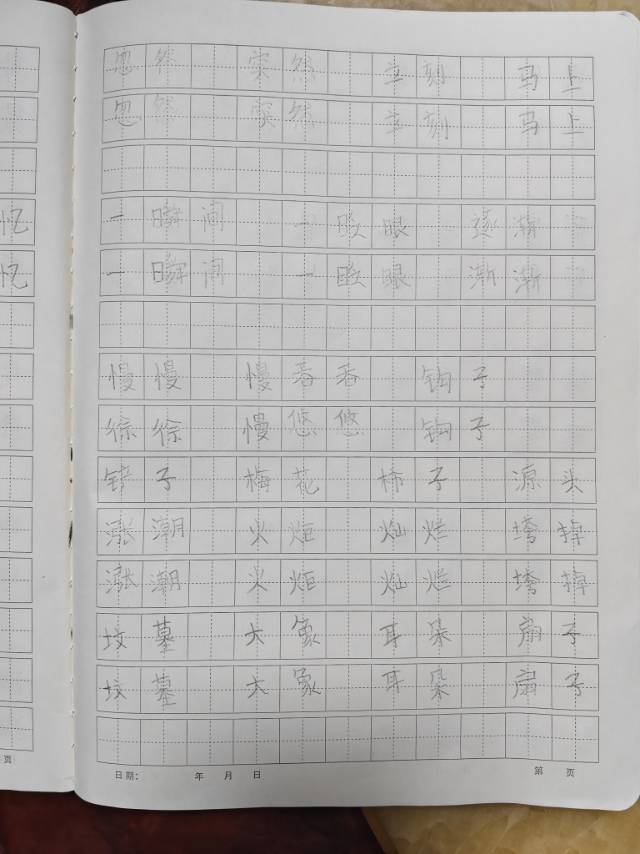 忽然 突然 立刻 马上
忽然 突然 立刻 马上
忆 一瞬间 一眨眼 逐渐
忆 一瞬间 一眨眼 渐渐
慢慢 慢吞吞 钩子
徐徐 慢悠悠 钩子
铲子 梅花 柿子 源头
涨潮 火炬 灿烂 垮掉
涨潮 火炬 灿烂 垮掉
坟墓 大象 耳朵 扇子
坟墓 大象 耳朵 扇子
页 日期： 年 月 日 第 页